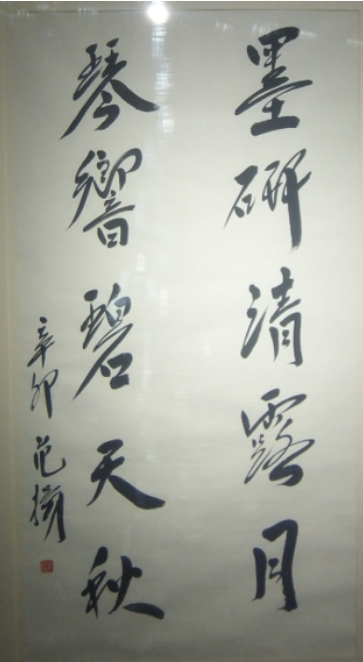 墨研清露月
琴響碧天秋
辛卯 范擴